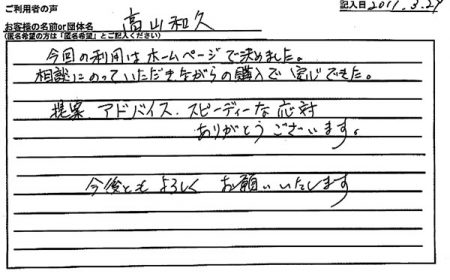 ご利用者の声
記入日 2011.3.29
お客様の名前or団体名 高山和久
(匿名希望の方は「匿名希望」とご記入ください)
今回の利用はホームページで決めました。
相談にのっていただきながらの購入で安心できた。
提案、アドバイス、スピーディーな応対
ありがとうございます。
今後ともよろしく お願いいたします